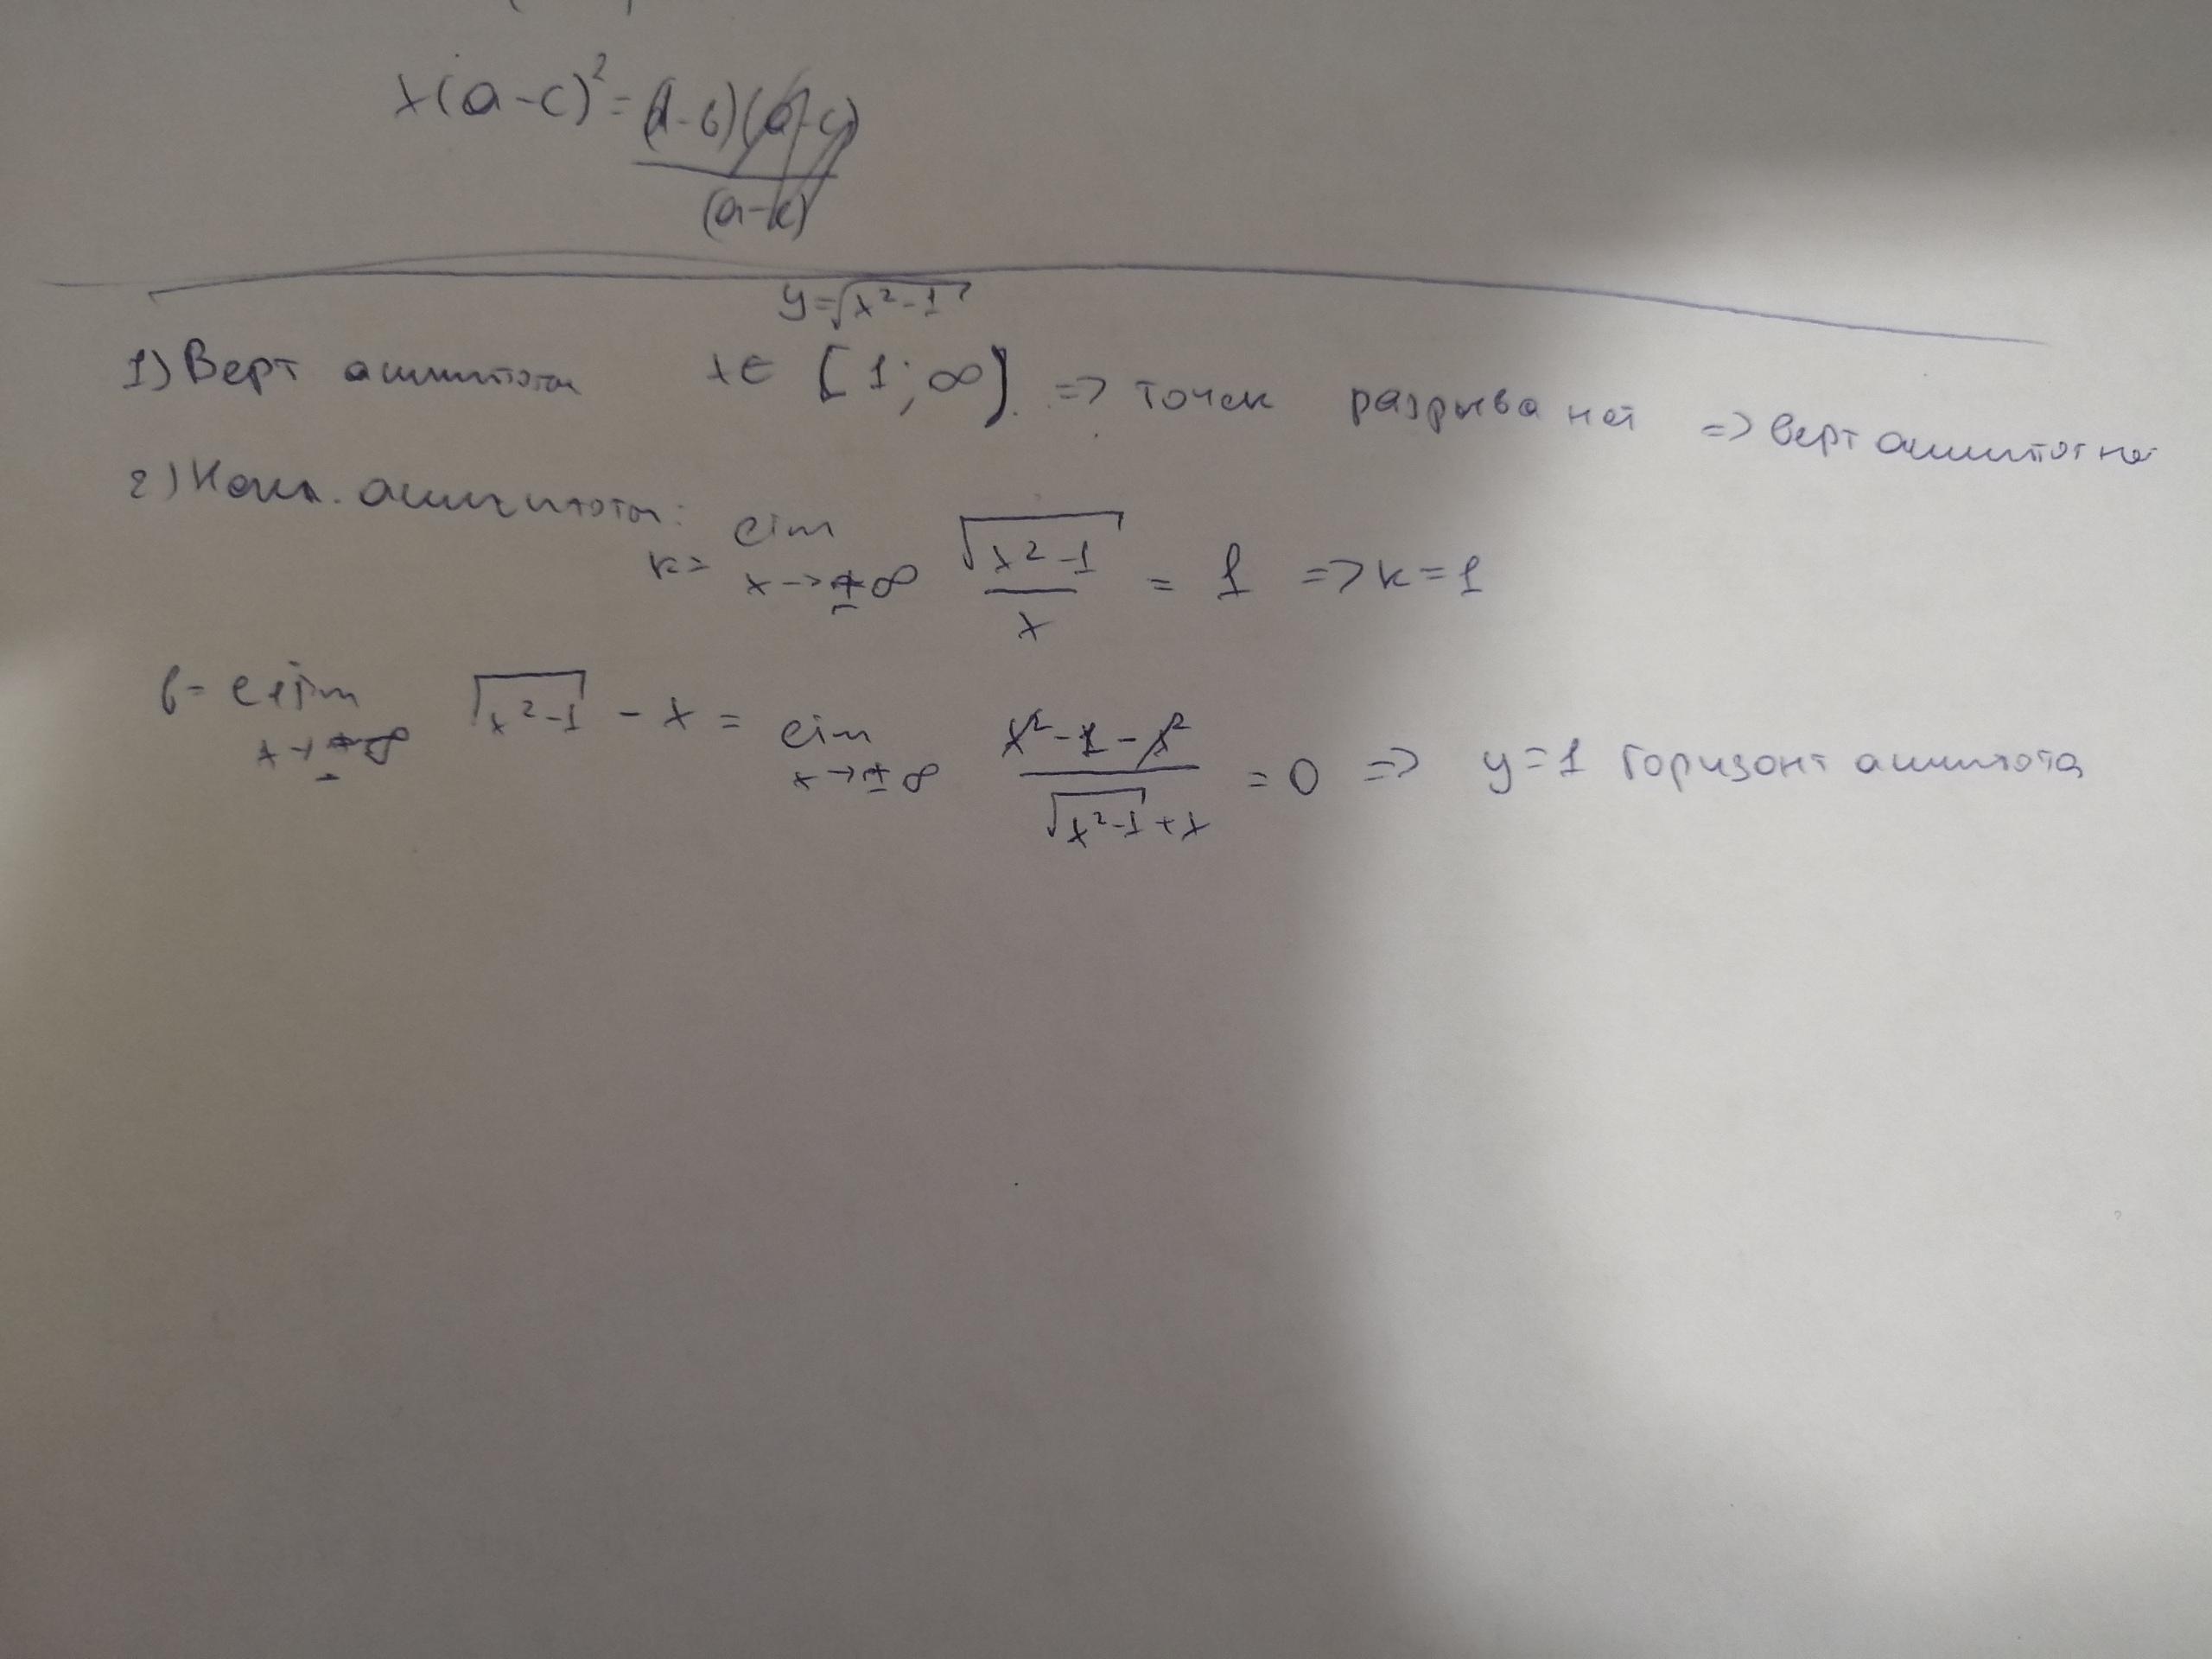 x(a-c)² = (a-b)(a-c)
(a-c)
y=√x²-1
1) Верт асимптота x∈ [1; ∞) => точек разрыва нет => верт асимптот не
2) Накл. асимптота:
k= lim x→±∞ √x²-1 / x = 1 => k=1
b= lim x→±∞ √x²-1 - x = lim x→±∞ x²-1-x² / √x²-1 + x = 0 => y=1 горизонт асимптота